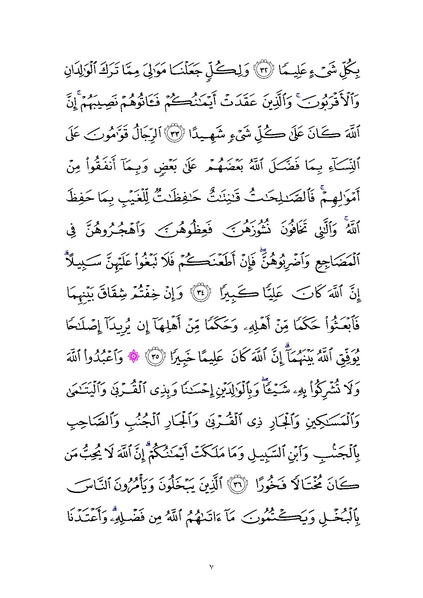 بِكُلِّ شَىْءٍ عَلِيمًا ٣٢ وَلِكُلٍّ جَعَلْنَا مَوَٰلِىَ مِمَّا تَرَكَ ٱلْوَٰلِدَانِ
وَٱلْأَقْرَبُونَ ۚ وَٱلَّذِينَ عَقَدَتْ أَيْمَٰنُكُمْ فَـَٔاتُوهُمْ نَصِيبَهُمْ ۚ إِنَّ
ٱللَّهَ كَانَ عَلَىٰ كُلِّ شَىْءٍ شَهِيدًا ٣٣ ٱلرِّجَالُ قَوَّٰمُونَ عَلَى
ٱلنِّسَآءِ بِمَا فَضَّلَ ٱللَّهُ بَعْضَهُمْ عَلَىٰ بَعْضٍ وَبِمَآ أَنفَقُوا۟ مِنْ
أَمْوَٰلِهِمْ ۚ فَٱلصَّٰلِحَٰتُ قَٰنِتَٰتٌ حَٰفِظَٰتٌ لِّلْغَيْبِ بِمَا حَفِظَ
ٱللَّهُ ۚ وَٱلَّٰتِى تَخَافُونَ نُشُوزَهُنَّ فَعِظُوهُنَّ وَٱهْجُرُوهُنَّ فِى
ٱلْمَضَاجِعِ وَٱضْرِبُوهُنَّ ۖ فَإِنْ أَطَعْنَكُمْ فَلَا تَبْغُوا۟ عَلَيْهِنَّ سَبِيلًا ۗ
إِنَّ ٱللَّهَ كَانَ عَلِيًّا كَبِيرًا ٣٤ وَإِنْ خِفْتُمْ شِقَاقَ بَيْنِهِمَا
فَٱبْعَثُوا۟ حَكَمًا مِّنْ أَهْلِهِۦ وَحَكَمًا مِّنْ أَهْلِهَآ إِن يُرِيدَآ إِصْلَٰحًا
يُوَفِّقِ ٱللَّهُ بَيْنَهُمَآ ۗ إِنَّ ٱللَّهَ كَانَ عَلِيمًا خَبِيرًا ٣٥ ۞ وَٱعْبُدُوا۟ ٱللَّهَ
وَلَا تُشْرِكُوا۟ بِهِۦ شَيْـًٔا ۖ وَبِٱلْوَٰلِدَيْنِ إِحْسَٰنًا وَبِذِى ٱلْقُرْبَىٰ وَٱلْيَتَٰمَىٰ
وَٱلْمَسَٰكِينِ وَٱلْجَارِ ذِى ٱلْقُرْبَىٰ وَٱلْجَارِ ٱلْجُنُبِ وَٱلصَّاحِبِ
بِٱلْجَنۢبِ وَٱبْنِ ٱلسَّبِيلِ وَمَا مَلَكَتْ أَيْمَٰنُكُمْ ۗ إِنَّ ٱللَّهَ لَا يُحِبُّ مَن
كَانَ مُخْتَالًا فَخُورًا ٣٦ ٱلَّذِينَ يَبْخَلُونَ وَيَأْمُرُونَ ٱلنَّاسَ
بِٱلْبُخْلِ وَيَكْتُمُونَ مَآ ءَاتَىٰهُمُ ٱللَّهُ مِن فَضْلِهِۦ ۗ وَأَعْتَدْنَا
٧